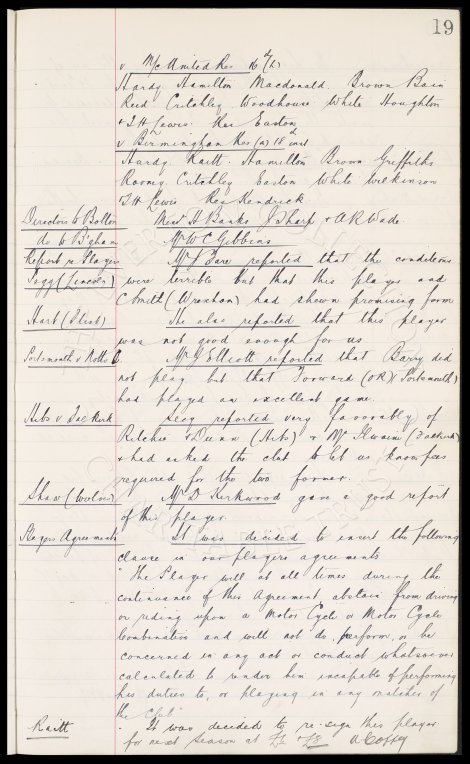 19
v Mc United Res 16th
Hardy. Hamilton Macdonald. Brown Bain
Reed Critchley Woodhouse White Houghton
& T H Lewis. Res Easton
v Birmingham Res (a) 18th inst
Hardy Raitt. Hamilton Brown Griffiths
Rooney. Critchley Easton White Wilkinson
T H Lewis Res Kendrick
Directors to Bolton Messrs H Banks J Sharp & A R Wade
do to B'gham Mr W C Gibbins
Report re Players Mr J Fare reported that the conditions
(Lincoln) were terrible but that this player and
C Smith (Wrexham) had shewn promising form
Hart ( ) He also reported that this player
was not good enough for us
Portsmouth v Notts C. Mr J Elliott reported that Barry did
not play but that Forward (OR) (Portsmouth)
had played an excellent game.
Hibs v Falkirk Secy reported very favorably of
Ritchie & Dunn (Hibs) & Mc Ilwain (Falkirk)
& had asked the club to let us know fees
required for the two former.
Shaw (Wolves) Mr D Kirkwood gave a good report
of this player.
Players Agreements It was decided to insert the following
clause in our players agreements
"The Player will at all times during the
continuance of this Agreement, abstain from driving
or riding upon a Motor Cycle or Motor Cycle
Combination and will not do, perform, or be
concerned in any act or conduct whatsoever
calculated to render him incapable of performing
his duties to, or playing in any matches of
the Club"
Raitt It was decided to re-sign this player
for next season at